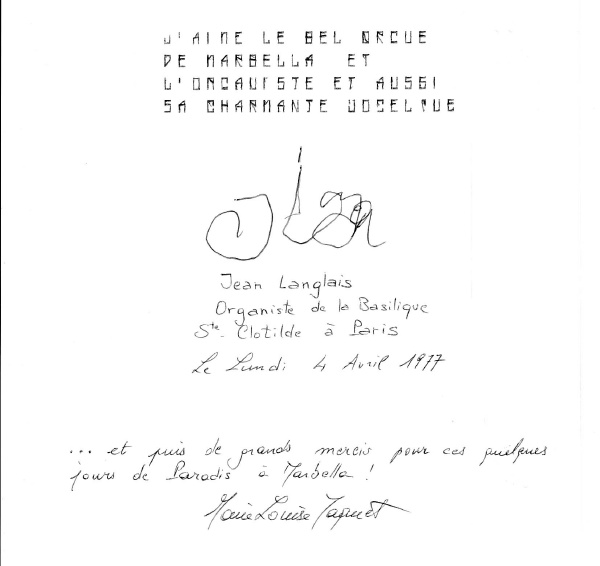 J'AIME LE BEL ORGUE
DE MARBELLA ET
L'ORGANISTE ET AUSSI
SA CHARMANTE JOCELYNE
Jean Langlais
Organiste de la Basilique
Ste. Clotilde à Paris
Le Lundi 4 Avril 1977
... et puis de grands mercis pour ces quelques
jours de Paradis à Marbella !
Marie Louise Jaquet